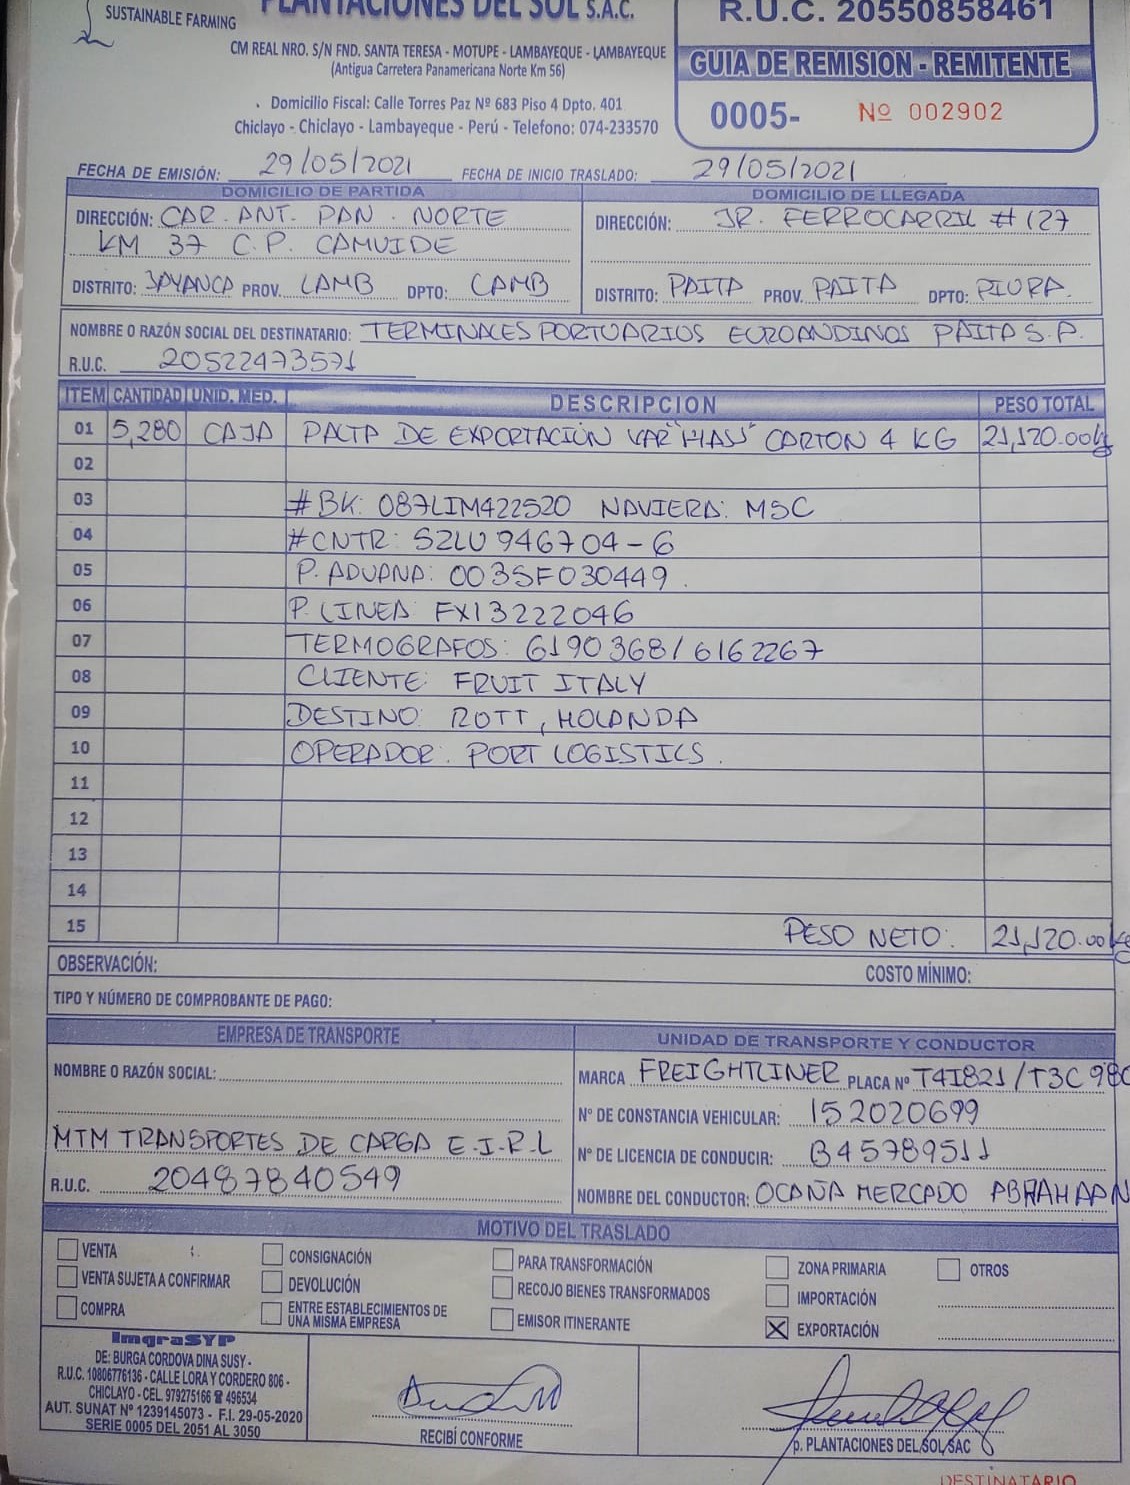 SUSTAINABLE FARMING
PLANTACIONES DEL SOL S.A.C.
CM REAL NRO. S/N FND. SANTA TERESA - MOTUPE - LAMBAYEQUE - LAMBAYEQUE
(Antigua Carretera Panamericana Norte Km 56)
Domicilio Fiscal: Calle Torres Paz Nº 683 Piso 4 Dpto. 401
Chiclayo - Chiclayo - Lambayeque - Perú - Telefono: 074-233570
R.U.C. 20550858461
GUIA DE REMISION - REMITENTE
0005- Nº 002902
FECHA DE EMISIÓN: 29/05/2021 FECHA DE INICIO TRASLADO: 29/05/2021
DOMICILIO DE PARTIDA
DIRECCIÓN: CAR. ANT. PAN. NORTE
KM 37 C.P. CAMUIDE
DISTRITO: JAYANCA PROV. LAMB DPTO: LAMB
DOMICILIO DE LLEGADA
DIRECCIÓN: JR. FERROCARRIL #127
DISTRITO: PAITA PROV. PAITA DPTO: PIURA.
NOMBRE O RAZÓN SOCIAL DEL DESTINATARIO: TERMINALES PORTUARIOS EUROANDINOS PAITA S.A.
R.U.C. 20522473571
ITEM CANTIDAD UNID. MED. DESCRIPCION PESO TOTAL
01 5,280 CAJA PALTA DE EXPORTACIÓN VAR "HASS" CARTON 4 KG 21,120.00kg
02
03 #BK: 087LIM422520 NAVIERA: MSC
04 #CNTR: SZLU 946704-6
05 P. ADUANA: 003SF030449.
06 P. LINEA: FX13222046
07 TERMOGRAFOS: 6190368/6162267
08 CLIENTE: FRUIT ITALY
09 DESTINO: ROTT, HOLANDA
10 OPERADOR: PORT LOGISTICS.
11
12
13
14
15 PESO NETO: 21,120.00kg
OBSERVACIÓN: COSTO MÍNIMO:
TIPO Y NÚMERO DE COMPROBANTE DE PAGO:
EMPRESA DE TRANSPORTE
NOMBRE O RAZÓN SOCIAL:
MTM TRANSPORTES DE CARGA E.I.R.L
R.U.C. 20487840549
UNIDAD DE TRANSPORTE Y CONDUCTOR
MARCA FREIGHTLINER PLACA Nº T4I821/T3C980
Nº DE CONSTANCIA VEHICULAR: 152020699
Nº DE LICENCIA DE CONDUCIR: B45789511
NOMBRE DEL CONDUCTOR: OCAÑA MERCADO ABRAHAAN
MOTIVO DEL TRASLADO
VENTA CONSIGNACIÓN PARA TRANSFORMACIÓN ZONA PRIMARIA OTROS
VENTA SUJETA A CONFIRMAR DEVOLUCIÓN RECOJO BIENES TRANSFORMADOS IMPORTACIÓN
COMPRA ENTRE ESTABLECIMIENTOS DE
UNA MISMA EMPRESA EMISOR ITINERANTE X EXPORTACIÓN
ImgraSYP
DE: BURGA CORDOVA DINA SUSY -
R.U.C. 10806776136 - CALLE LORA Y CORDERO 806 -
CHICLAYO - CEL. 979275166 ☎ 496534
AUT. SUNAT Nº 1239145073 - F.I. 29-05-2020
SERIE 0005 DEL 2051 AL 3050
RECIBÍ CONFORME
p. PLANTACIONES DEL SOL SAC
DESTINATARIO